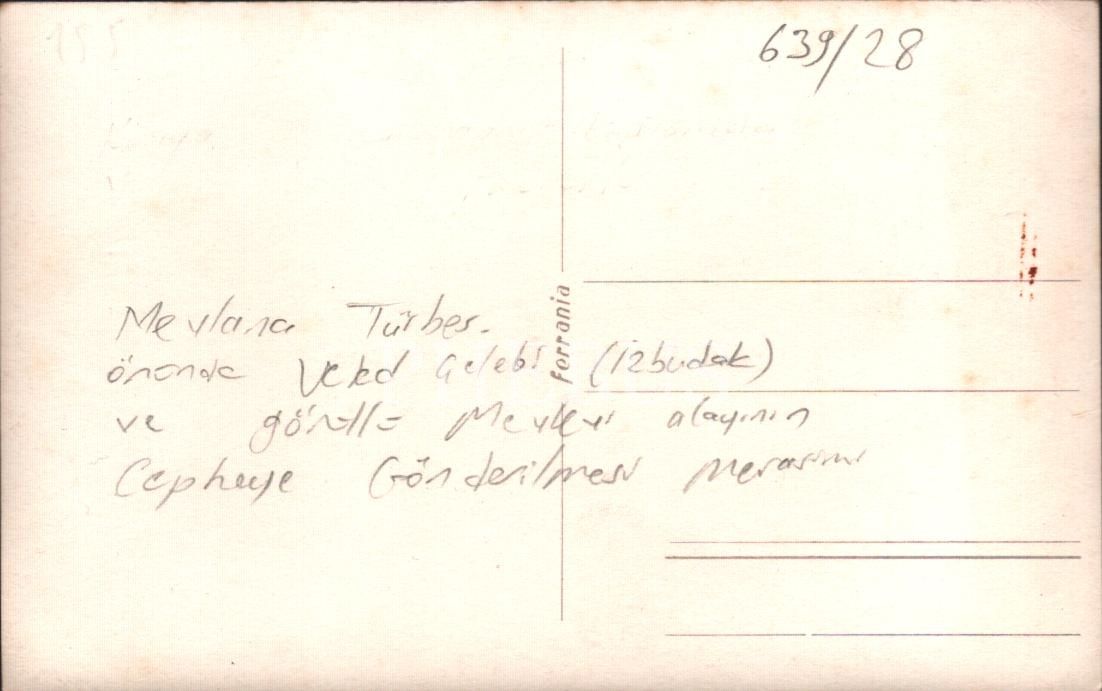 639/28
ferrania
Mevlana Türbes.
önünde Veled Çelebi (İzbudak)
ve Mevlevi alayının
Cepheye Gönderilmesi merasimi